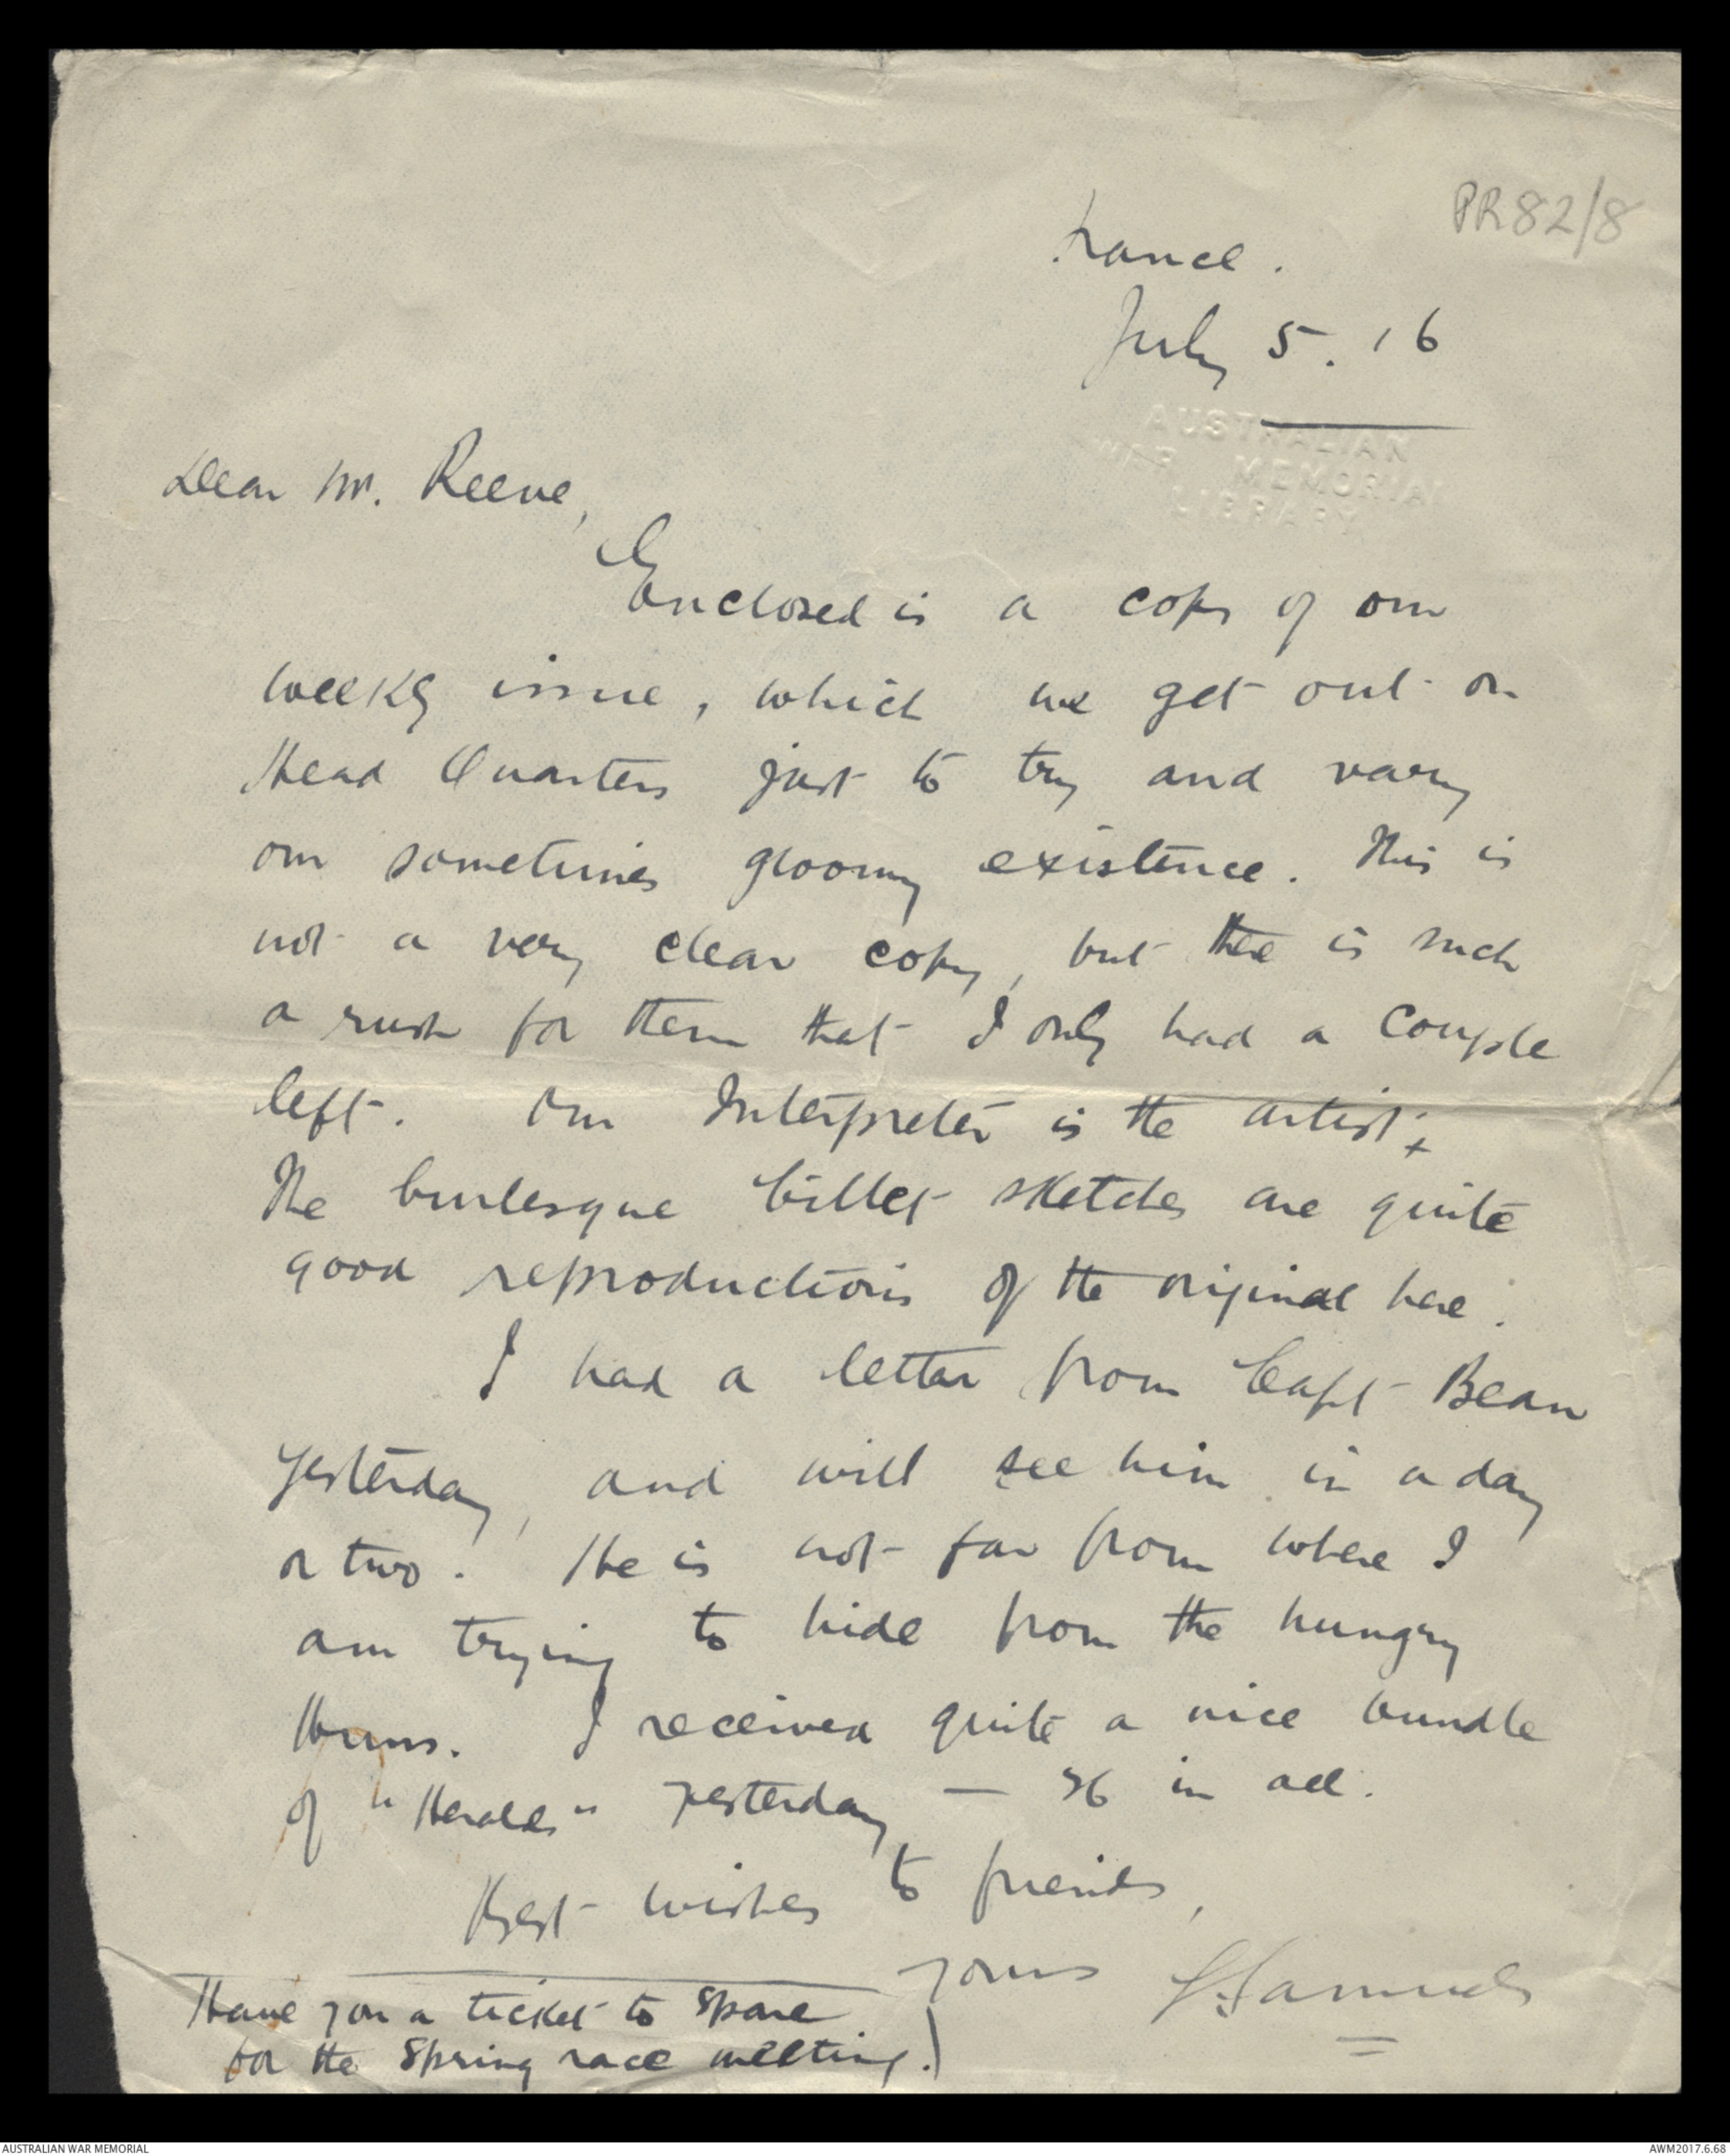 PR82/8
France.
July 5. 16
AUSTRALIAN
WAR MEMORIAL
LIBRARY
Dear Mr. Reeve,
Enclosed is a copy of our
weekly issue, which we get out on
Head Quarters just to try and vary
our sometimes gloomy existence. This is
not a very clear copy, but there is such
a rush for them that I only had a couple
left. Our Interpreter is the artist; +
The burlesque billet sketches are quite
good reproductions of the original here.
I had a letter from Capt Bean
yesterday, and will see him in a day
or two. He is not far from where I
am trying to hide from the hungry
Huns. I received quite a nice bundle
of "Heralds" yesterday — 36 in all.
Best wishes to friends,
Yours
Have you a ticket to spare
for the Spring race meeting.)
AUSTRALIAN WAR MEMORIAL
AWM2017.6.68